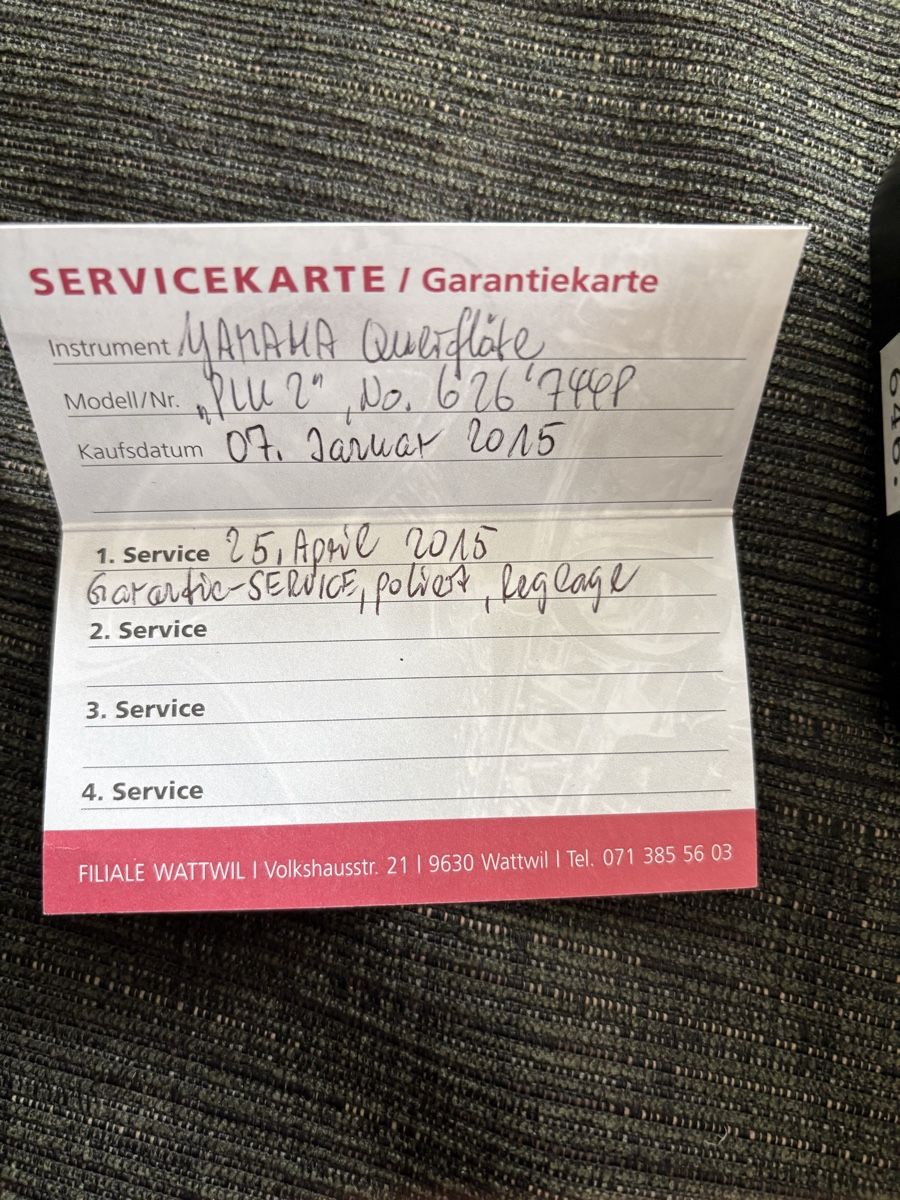 SERVICEKARTE / Garantiekarte
Instrument YAMAHA Querflöte
Modell/Nr. No. 626'
Kaufsdatum 07. Januar 2015
1. Service 25. April 2015
Garantie-SERVICE, poliert, Reglage
2. Service
3. Service
4. Service
FILIALE WATTWIL | Volkshausstr. 21 | 9630 Wattwil | Tel. 071 385 56 03
646.